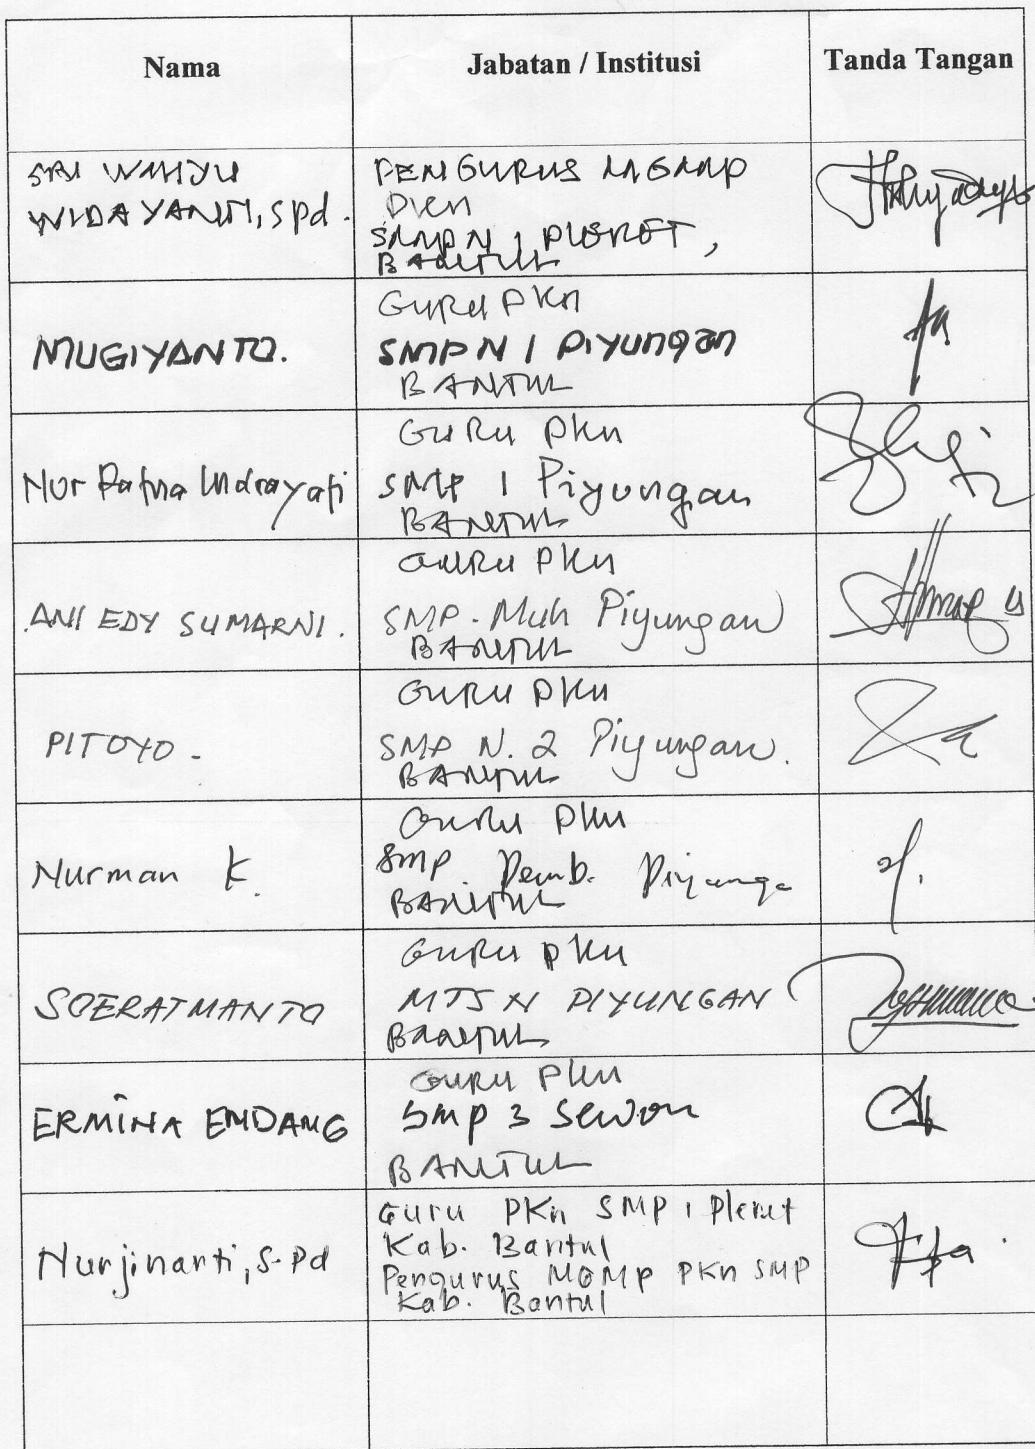 Nama
Jabatan / Institusi
Tanda Tangan
SRI WAHYU
WIDAYANTI, Spd.
PENGURUS MGMP
PKn
SMP N 1 PLERET,
BANTUL
MUGIYANTO.
GURU PKn
SMP N 1 Piyungan
BANTUL
Nur Ratna Indrayati
GURU PKn
SMP 1 Piyungan
BANTUL
ANI EDY SUMARNI.
GURU PKn
SMP. Muh Piyungan
BANTUL
PITOYO.
GURU PKn
SMP N. 2 Piyungan.
BANTUL
Nurman K.
GURU PKn
SMP Pemb.
BANTUL
SOERATMANTO
GURU PKn
MTS N PIYUNGAN
BANTUL
ERMINA ENDANG
GURU PKn
SMP 3 Sewon
BANTUL
Nurjinarti, S.Pd
Guru PKn SMP 1 Pleret
Kab. Bantul
Pengurus MGMP PKn SMP
Kab. Bantul